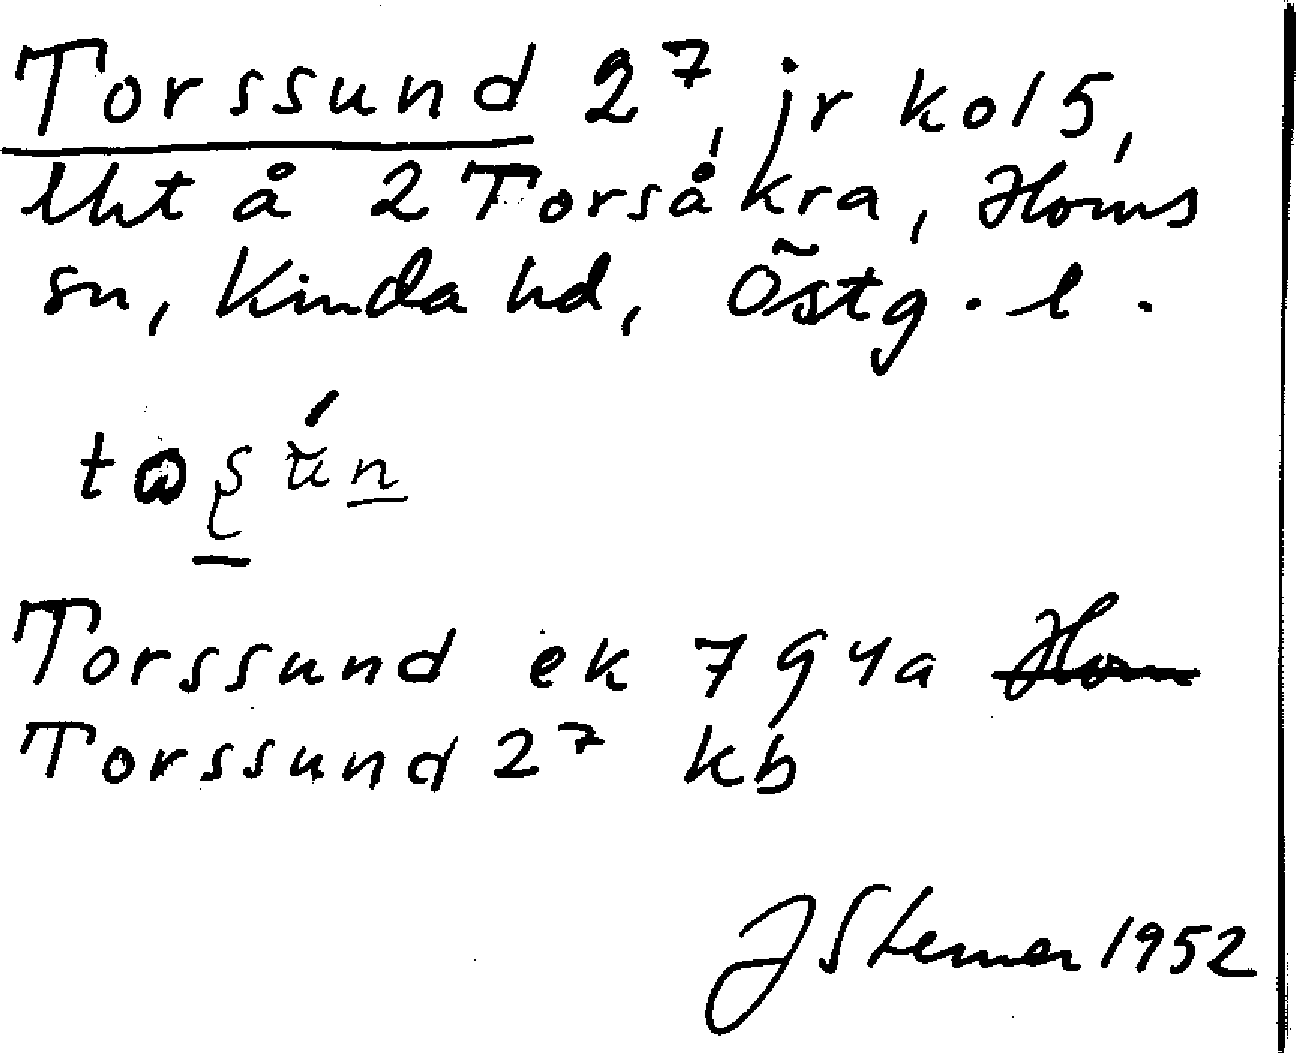 Torssund 2⁷, jr kol 5,
lht å 2 Torsåkra, Horns
sn, Kinda hd, Östg. l.
Torssund ek 7 g 4a
Torssund 2⁷ kb
J Sterner 1952